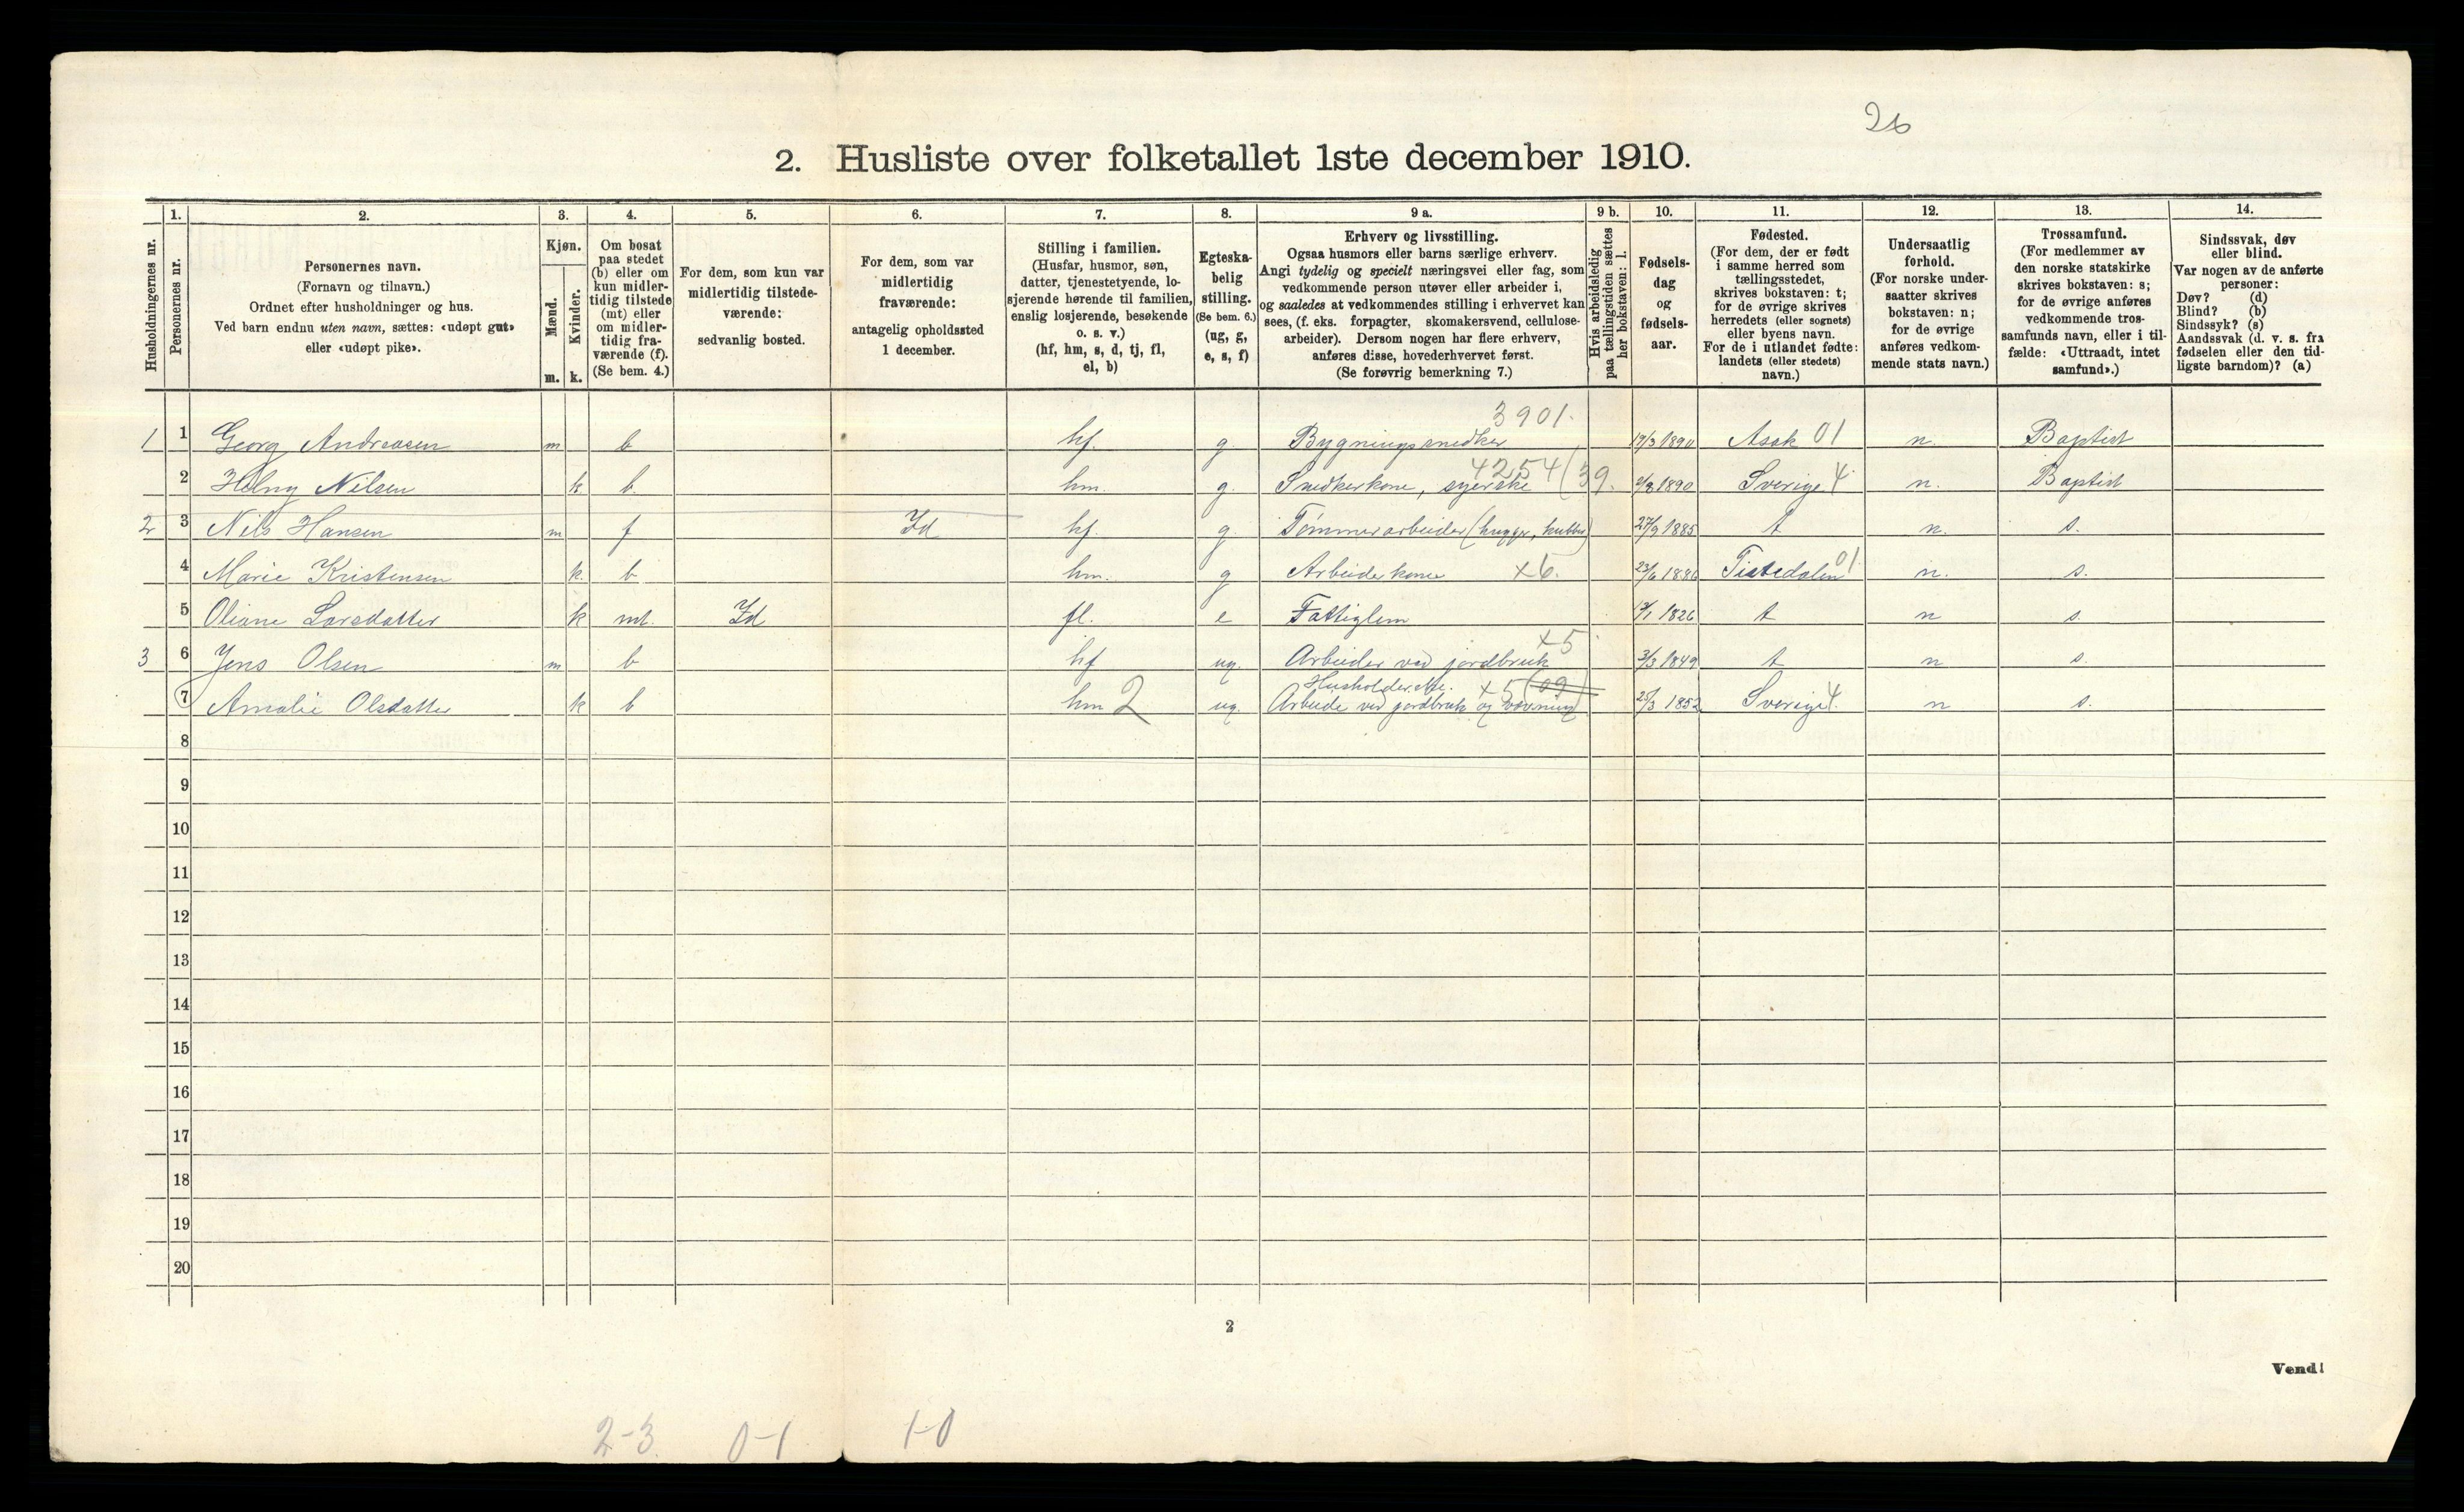 26
2. Husliste over folketallet 1ste december 1910.
Husholdningernes nr.
1.
Personernes nr.
2.
Personernes navn.
(Fornavn og tilnavn.)
Ordnet efter husholdninger og hus.
Ved barn endnu uten navn, sættes: «udøpt gut»
eller «udøpt pike».
3.
Kjøn.
Mænd.
m.
Kvinder.
k.
4.
Om bosat
paa stedet
(b) eller om
kun midler-
tidig tilstede
(mt) eller
om midler-
tidig fra-
værende (f).
(Se bem. 4.)
5.
For dem, som kun var
midlertidig tilstede-
værende:
sedvanlig bosted.
6.
For dem, som var
midlertidig
fraværende:
antagelig opholdssted
1 december.
7.
Stilling i familien.
(Husfar, husmor, søn,
datter, tjenestetyende, lo-
sjerende hørende til familien,
enslig losjerende, besøkende
o. s. v.)
(hf, hm, s, d, tj, fl,
el, b)
8.
Egteska-
belig
stilling.
(Se bem. 6.)
(ug, g,
e, s, f)
9 a.
Erhverv og livsstilling.
Ogsaa husmors eller barns særlige erhverv.
Angi tydelig og specielt næringsvei eller fag, som
vedkommende person utøver eller arbeider i,
og saaledes at vedkommendes stilling i erhvervet kan
sees, (f. eks. forpagter, skomakersvend, cellulose-
arbeider). Dersom nogen har flere erhverv,
anføres disse, hovederhvervet først.
(Se forøvrig bemerkning 7.)
9 b.
Hvis arbeidsledig
paa tællingstiden sættes
her bokstaven: l.
10.
Fødsels-
dag
og
fødsels-
aar.
11.
Fødested.
(For dem, der er født
i samme herred som
tællingsstedet,
skrives bokstaven: t;
for de øvrige skrives
herredets (eller sognets)
eller byens navn.
For de i utlandet fødte:
landets (eller stedets)
navn.)
12.
Undersaatlig
forhold.
(For norske under-
saatter skrives
bokstaven: n;
for de øvrige
anføres vedkom-
mende stats navn.)
13.
Trossamfund.
(For medlemmer av
den norske statskirke
skrives bokstaven: s;
for de øvrige anføres
vedkommende tros-
samfunds navn, eller i til-
fælde: «Uttraadt, intet
samfund».)
14.
Sindssvak, døv
eller blind.
Var nogen av de anførte
personer:
Døv? (d)
Blind? (b)
Sindssyk? (s)
Aandssvak (d. v. s. fra
fødselen eller den tid-
ligste barndom)? (a)
3901.
1 1 Georg Andreasen m b hf. g. Bygningssnedker 1890 Asak 01 n. Baptist
4254 (39.
2 Nilsen k b. hm. g. Snedkerkone, syerske 1890 Sverige 4 n. Baptist
2 3 Nils Hansen m f Id hf. g. Tømmerarbeider (hugger, kubber) 27/9 1885 t n. s.
4 Marie Kristensen k. b. hm. g Arbeiderkone x6. 23/6 1886 Tistedalen 01 n. s.
5 Oliane Larsdatter k mt. Id fl. e Fattiglem 1826 t n s.
x5
3 6 Jens Olsen m b hf ug. Arbeider ved jordbruk 3/3 1849 t n s.
Husholderske. x5 (09)
7 Amalie Olsdatter k b hm 2 ug. Arbeide ved jordbruk og vævning 25/3 1852 Sverige 4. n s.
8
9
10
11
12
13
14
15
16
17
18
19
20
2
Vend!
2-3. 0-1 1-0